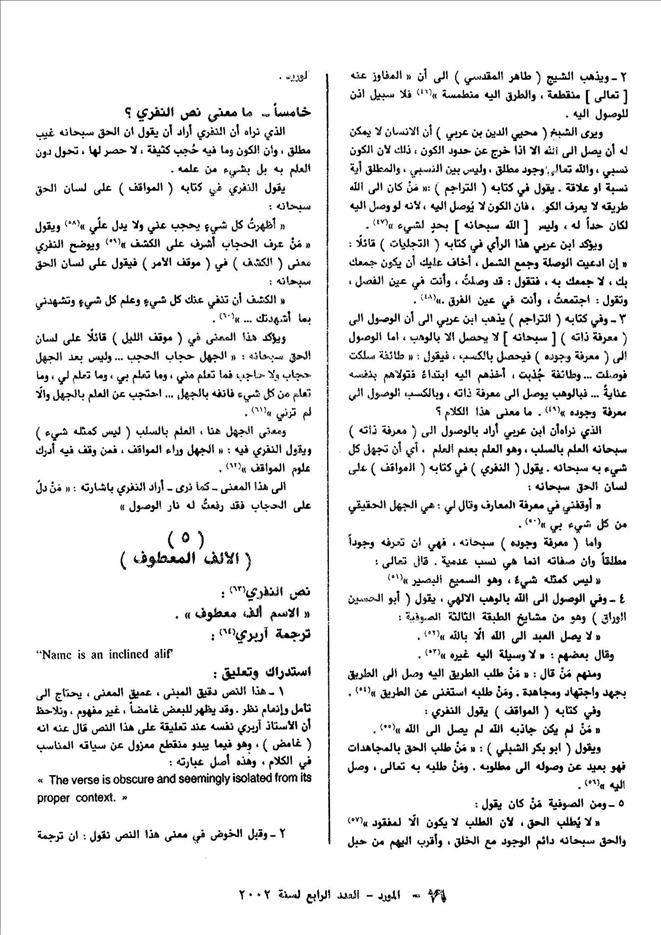 ٢ ـ ويذهب الشيخ ( طاهر المقدسي ) الى أن « المفاوز عنه
[ تعالى ] منقطعة ، والطرق اليه منطمسة »(٤٦) فلا سبيل اذن
للوصول اليه .
ويرى الشيخ ( محيي الدين بن عربي ) أن الانسان لا يمكن
له أن يصل الى الله الا اذا خرج عن حدود الكون ، ذلك لأن الكون
نسبي ، والله تعالى وجود مطلق ، وليس بين النسبي ، والمطلق أية
نسبة او علاقة . يقول في كتابه ( التراجم ) :« مَنْ كان الى الله
طريقه لا يعرف الكون ، فان الكون لا يُوصل اليه ، لأنه لو وصل اليه
لكان حداً له ، وليس [ الله سبحانه ] بحدٍ لشيء »(٤٧) .
ويؤكد ابن عربي هذا الرأي في كتابه ( التجليات ) قائلًا :
« إن ادعيت الوصلة وجمع الشمل ، أخاف عليك أن يكون جمعك
بك ، لا جمعك به ، فتقول : قد وصلتُ ، وأنت في عين الفصل ،
وتقول : اجتمعتُ ، وأنت في عين الفرق .»(٤٨) .
٣ ـ وفي كتابه ( التراجم ) يذهب ابن عربي الى أن الوصول الى
( معرفة ذاته ) [ سبحانه ] لا يحصل الا بالوهب ، اما الوصول
الى ( معرفة وجوده ) فيحصل بالكسب ، فيقول : « طائفة سلكت
فوصلت ... وطائفة جُذبت ، أخذهم اليه ابتداءً فتولاهم بنفسه
عنايةً ... فبالوهب يوصل الى معرفة ذاته ، وبالكسب الوصول الى
معرفة وجوده »(٤٩) . ما معنى هذا الكلام ؟
الذي نراه أن ابن عربي أراد بالوصول الى ( معرفة ذاته )
سبحانه العلم بالسلب ، وهو العلم بعدم العلم ، أي أن تجهل كل
شيء به سبحانه . يقول ( النفري ) في كتابه ( المواقف ) على
لسان الحق سبحانه :
« أوقفني في معرفة المعارف وقال لي : هي الجهل الحقيقي
من كل شيء بي »(٥٠) .
واما ( معرفة وجوده ) سبحانه ، فهي ان تعرفه وجوداً
مطلقاً وان صفاته انما هي نسب عدمية . قال تعالى :
« ليس كمثله شيء ، وهو السميع البصير »(٥١)
٤ ـ وفي الوصول الى الله بالوهب الالهي ، يقول ( أبو الحسين
الوراق ) وهو من مشايخ الطبقة الثالثة الصوفية :
« لا يصل العبد الى الله الّا بالله »(٥٢) .
وقال بعضهم : « لا وسيلة اليه غيره »(٥٣) .
ومنهم مَنْ قال : « مَنْ طلب الطريق اليه وصل الى الطريق
بجهد واجتهاد ومجاهدة . ومَنْ طلبه استغنى عن الطريق »(٥٤) .
وفي كتابه ( المواقف ) يقول النفري :
« مَنْ لم يكن جاذبه الله لم يصل الى الله »(٥٥) .
ويقول ( أبو بكر الشبلي ) : « مَنْ طلب الحق بالمجاهدات
فهو بعيد عن وصوله الى مطلوبه . ومَنْ طلبه به تعالى ، وصل
اليه »(٥٦) .
٥ ـ ومن الصوفية مَنْ كان يقول :
« لا يُطلب الحق ، لأن الطلب لا يكون الّا لمفقود »(٥٧)
والحق سبحانه دائم الوجود مع الخلق ، وأقرب اليهم من حبل
لوريد .
خامساً ـ ما معنى نص النفري ؟
الذي نراه أن النفري أراد أن يقول ان الحق سبحانه غيب
مطلق ، وان الكون وما فيه حُجب كثيفة ، لا حصر لها ، تحول دون
العلم به بل بشيء من علمه .
يقول النفري في كتابه ( المواقف ) على لسان الحق
سبحانه :
« أظهرتُ كل شيءٍ يحجب عني ولا يدل عليّ »(٥٨) ويقول
« مَنْ عرف الحجاب أشرف على الكشف »(٥٩) ويوضح النفري
معنى ( الكشف ) في ( موقف الأمر ) فيقول على لسان الحق
سبحانه :
« الكشف أن تنفي عنك كل شيءٍ وعلم كل شيءٍ وتشهدني
بما أشهدتك ... »(٦٠) .
ويؤكد هذا المعنى في ( موقف الليل ) قائلًا على لسان
الحق سبحانه : « الجهل حجاب الحجب ... وليس بعد الجهل
حجاب ولا حاجب فما تعلم مني ، وما تعلم بي ، وما تعلم لي ، وما
تعلم من كل شيء فانفه بالجهل ... احتجب عن العلم بالجهل والّا
لم ترني »(٦١) .
ومعنى الجهل هنا ، العلم بالسلب ( ليس كمثله شيء )
ويقول النفري فيه : « الجهل وراء المواقف ، فمن وقف فيه أدرك
علوم المواقف »(٦٢) .
الى هذا المعنى ـ كما نرى ـ أراد النفري باشارته : « مَنْ دلّ
على الحجاب فقد رفعتُ له نار الوصول »
( ٥ )
( الالف المعطوف )
نص النفري(٦٣) :
« الاسم ألف معطوف » .
ترجمة آربري(٦٤) :
“Name is an inclined alif”
استدراك وتعليق :
١ ـ هذا النص دقيق المبنى ، عميق المعنى ، يحتاج الى
تأمل وإنعام نظر . وقد يظهر للبعض غامضاً ، غير مفهوم ، ونلاحظ
أن الأستاذ آربري نفسه عند تعليقة على هذا النص قال عنه انه
( غامض ) ، وهو فيما يبدو منقطع معزول عن سياقه المناسب
في الكلام ، وهذه أصل عبارته :
« The verse is obscure and seemingly isolated from its
proper context. »
٢ ـ وقبل الخوض في معنى هذا النص نقول : ان ترجمة
المورد – العدد الرابع لسنة ٢٠٠٢